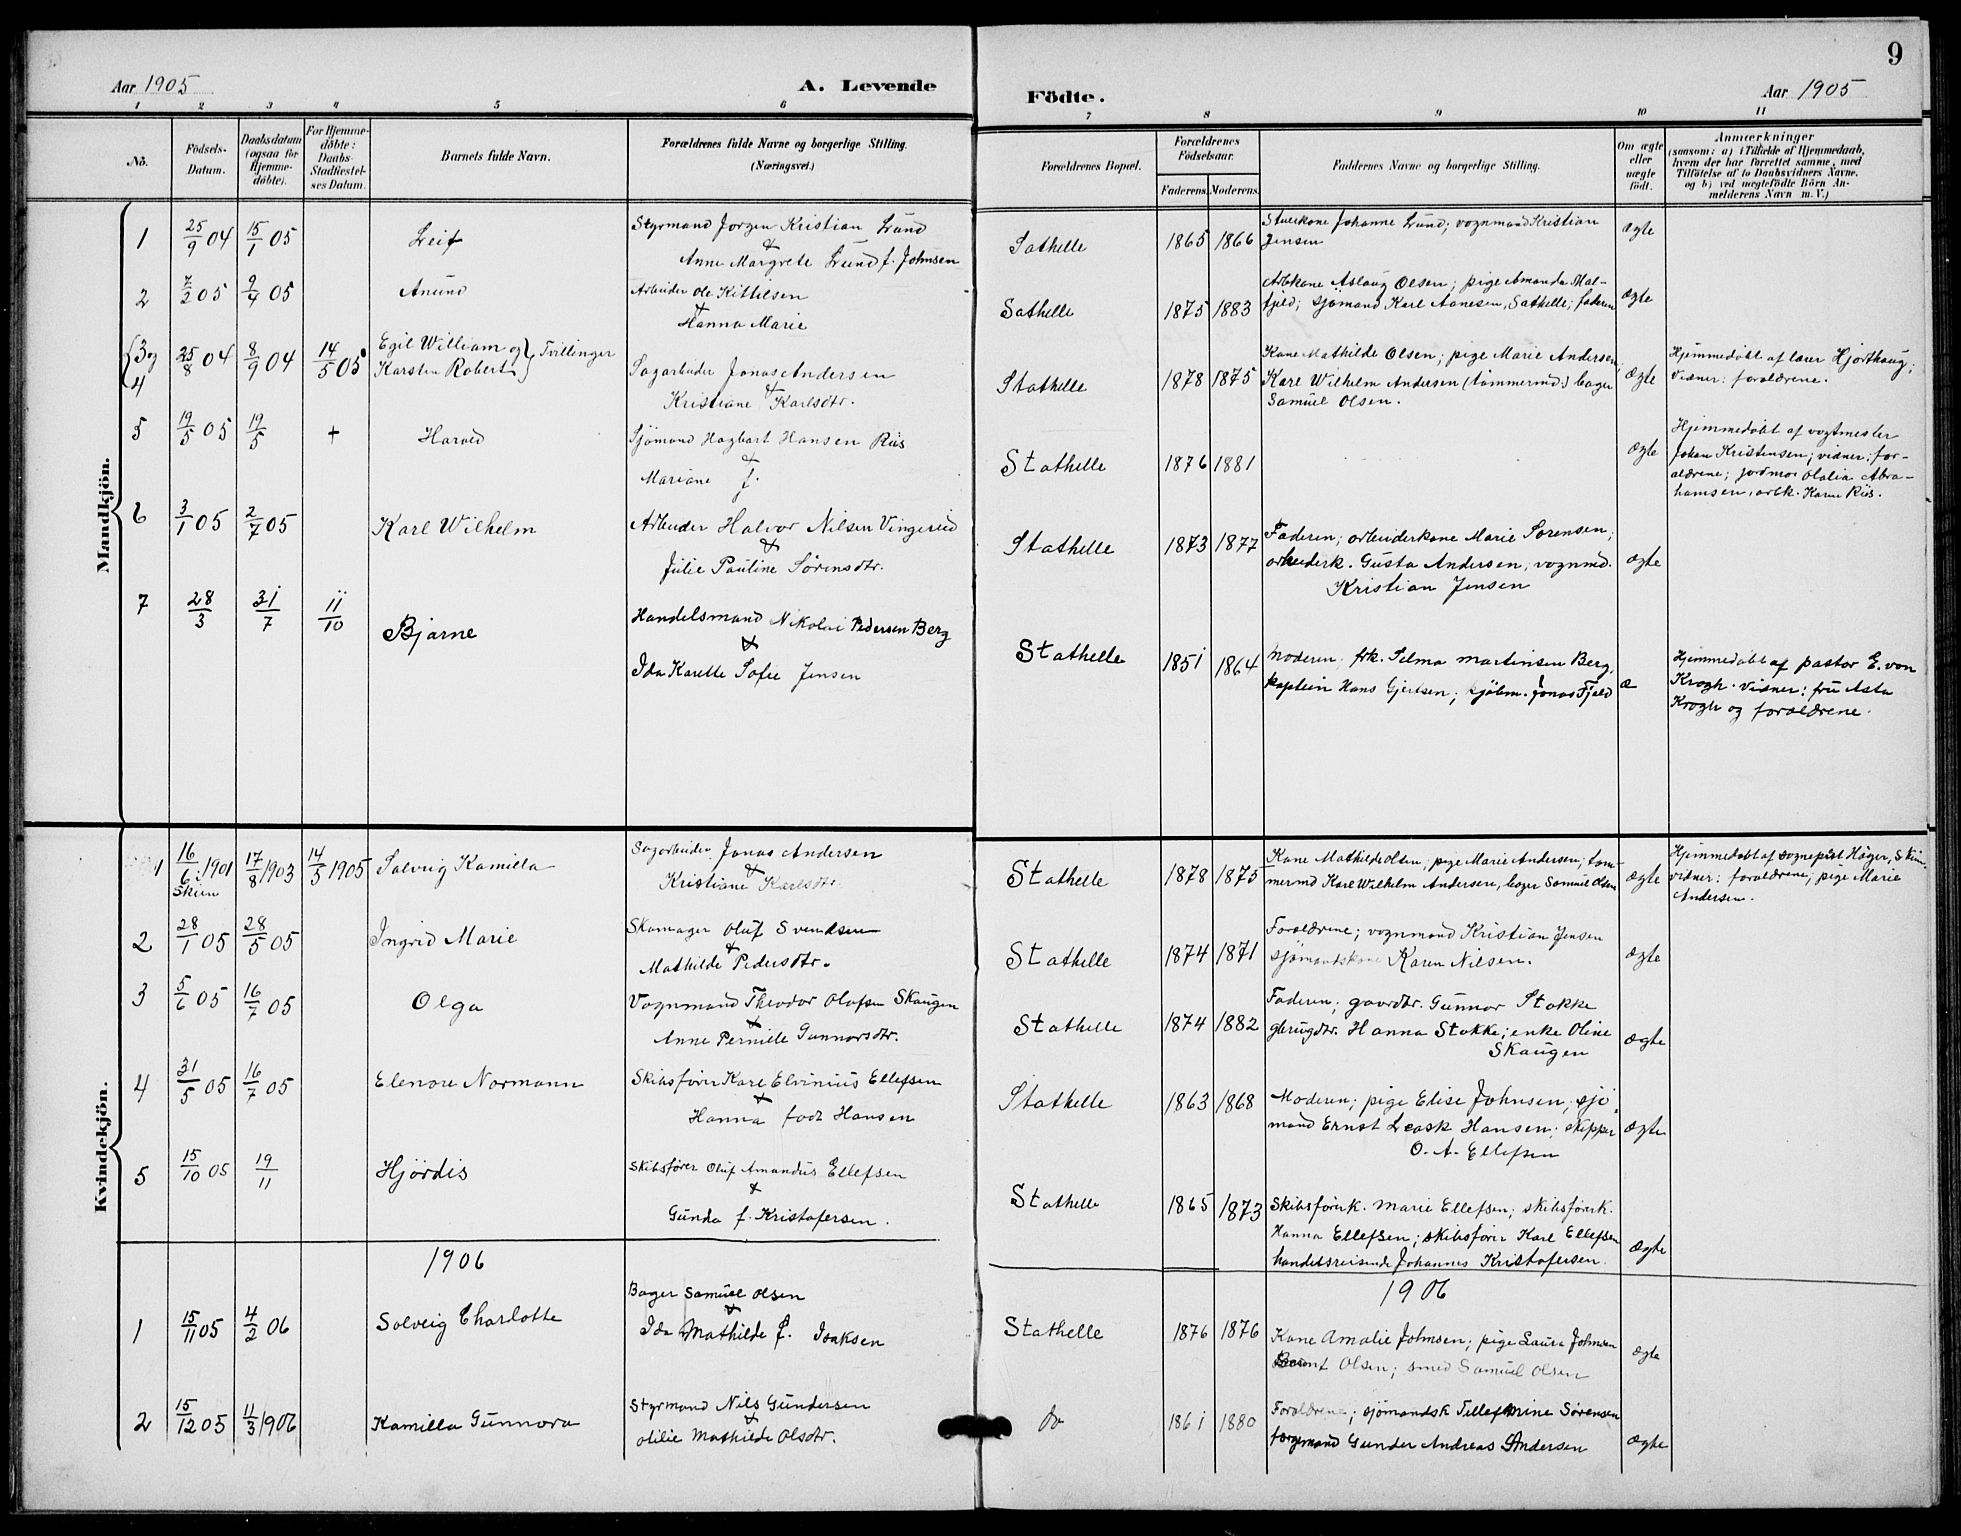 9
Aar 1905
A. Levende
Födte.
Aar 1905
1 2 3 4 5 6 7 8 9 10 11
No.
Födsels-
Datum.
Daabsdatum
(ogsaa for
Hjemme-
döbte).
For Hjemme-
döbte:
Daabs-
Stadfæstel-
ses Datum.
Barnets fulde Navn.
Forældrenes fulde Navne og borgerlige Stilling.
(Næringsvei.)
Forældrenes Bopæl.
Forældrenes
Födselsaar.
Faderens. Moderens.
Faddernes Navne og borgerlige Stilling.
Om ægte
eller
uægte
födt.
Anmærkninger
(saasom: a) i Tilfælde af Hjemmedaab,
hvem der har forrettet samme, med
Tilföielse af to Daabsvidners Navne,
og b) ved uægtefödte Börn An-
melderens Navn m. V.)
Mandkjön.
1 25/9 04 15/1 05 Leif
Styrmand Jorgen Kristian Lund
&
Anne Margrete Lund f. Johnsen
Sathelle 1865 1866
Stuerkone Johanne Lund; vognmand Kristian
Jensen
ægte
2 7/2 05 9/4 05 Anund
Arbeider Ole Kittilsen
&
Hanna Marie
Sathelle 1875 1883
Arbkone Aslaug Olsen; pige Amanda Mal-
fjeld; sjömand Karl Aanesen, Sathelle; faderen
ægte
3 og
4
25/8 04 8/9 04 14/5 05
Egil William og
Karsten Robert
Tvillinger
Sagarbeider Jonas Andersen
&
Kristiane Karlsdtr.
Stathelle 1878 1875
Kone Mathilde Olsen; pige Marie Andersen;
Karl Wilhelm Andersen (tömmermd.) bager
Samuel Olsen.
ægte
Hjemmedöbt af lærer Hjorthaug;
Vidner: forældrene.
5 19/5 05 19/5 + Harald
Sjömand Hagbart Hansen Riis
&
Mariane f.
Stathelle 1876 1881
ægte
Hjemmedöbt af vogtmester
Johan Kristensen; vidner: for-
ældrene; jordmor Olalia Abra-
hamsen, arbk. Karen Riis.
6 3/1 05 2/7 05 Karl Wilhelm
Arbeider Halvor Nilsen Vingereid
&
Julie Pauline Sörensdtr.
Stathelle 1873 1877
Faderen; arbeiderkone Marie Sorensen;
arbeiderk. Gusta Andersen; vognmd.
Kristian Jensen
ægte
7 28/3 31/7 11/10 Bjarne
Handelsmand Nikolai Pedersen Berg
&
Ida Karelle Sofie Jensen
Stathelle 1851 1864
Moderen; frk. Selma Martinsen Berg,
kaptein Hans Gjertsen; sjöbm. Jonas Fjeld
æ
Hjemmedöbt af pastor E. von
Krogh. Vidner: fru Asta
Krogh og forældrene.
Kvindekjön.
1 16/6 1901
Skien
17/8 1903 14/5 1905 Solveig Kamilla
Sagarbeider Jonas Andersen
&
Kristiane Karlsdtr.
Stathelle 1878 1875
Kone Mathilde Olsen, pige Marie Andersen; töm-
mermd Karl Wilhelm Andersen, bager Samuel Olsen
ægte
Hjemmedöbt af sognepræst Höyer, Skien.
vidner: forældrene; pige Marie
Andersen.
2 28/1 05 28/5 05 Ingrid Marie
Skomager Oluf Svendsen
&
Mathilde Pedersdtr.
Stathelle 1874 1871
Forældrene; vognmand Kristian Jensen
sjömandskone Karen Nilsen.
ægte
3 5/6 05 16/7 05 Olga
Vognmand Theodor Olafsen Skaugen
&
Anne Pernille Gunnorsdtr.
Stathelle 1874 1882
Faderen; gaardbr. Gunnor Stokke
gbrugdtr. Hanna Stokke; enke Oline
Skaugen
ægte
4 31/5 05 16/7 05 Elenore Normann
Skibsförer Karl Elvinius Ellefsen
&
Hanna född Hansen
Stathelle 1863 1868
Moderen; pige Elise Johnsen; sjö-
mand Ernst Leask Hansen; skipper
O. A. Ellefsen
ægte
5 15/10 05 19/11 Hjördis
Skibsförer Oluf Amandus Ellefsen
&
Gunda f. Kristofersen.
Stathelle 1865 1873
Skibsförerk. Marie Ellefsen; skibsförerk.
Hanna Ellefsen; skibsförer Karl Ellefsen
handelsreisende Johannes Kristofersen.
ægte
1906
1906
1 15/11 05 4/2 06 Solveig Charlotte
Bager Samuel Olsen
&
Ida Mathilde f. Isaksen
Stathelle 1876 1876
Kone Amalie Johnsen; pige Laura Johnsen
Berent Olsen; smed Samuel Olsen
ægte
2 15/12 05 11/3 1906 Kamilla Gunnora
Styrmand Nils Gundersen
&
Otilie Mathilde Olsdtr.
do 1861 1880
Forældrene; sjömandsk Tillefmine Sörensen
Gunder Andreas Andersen
ægte